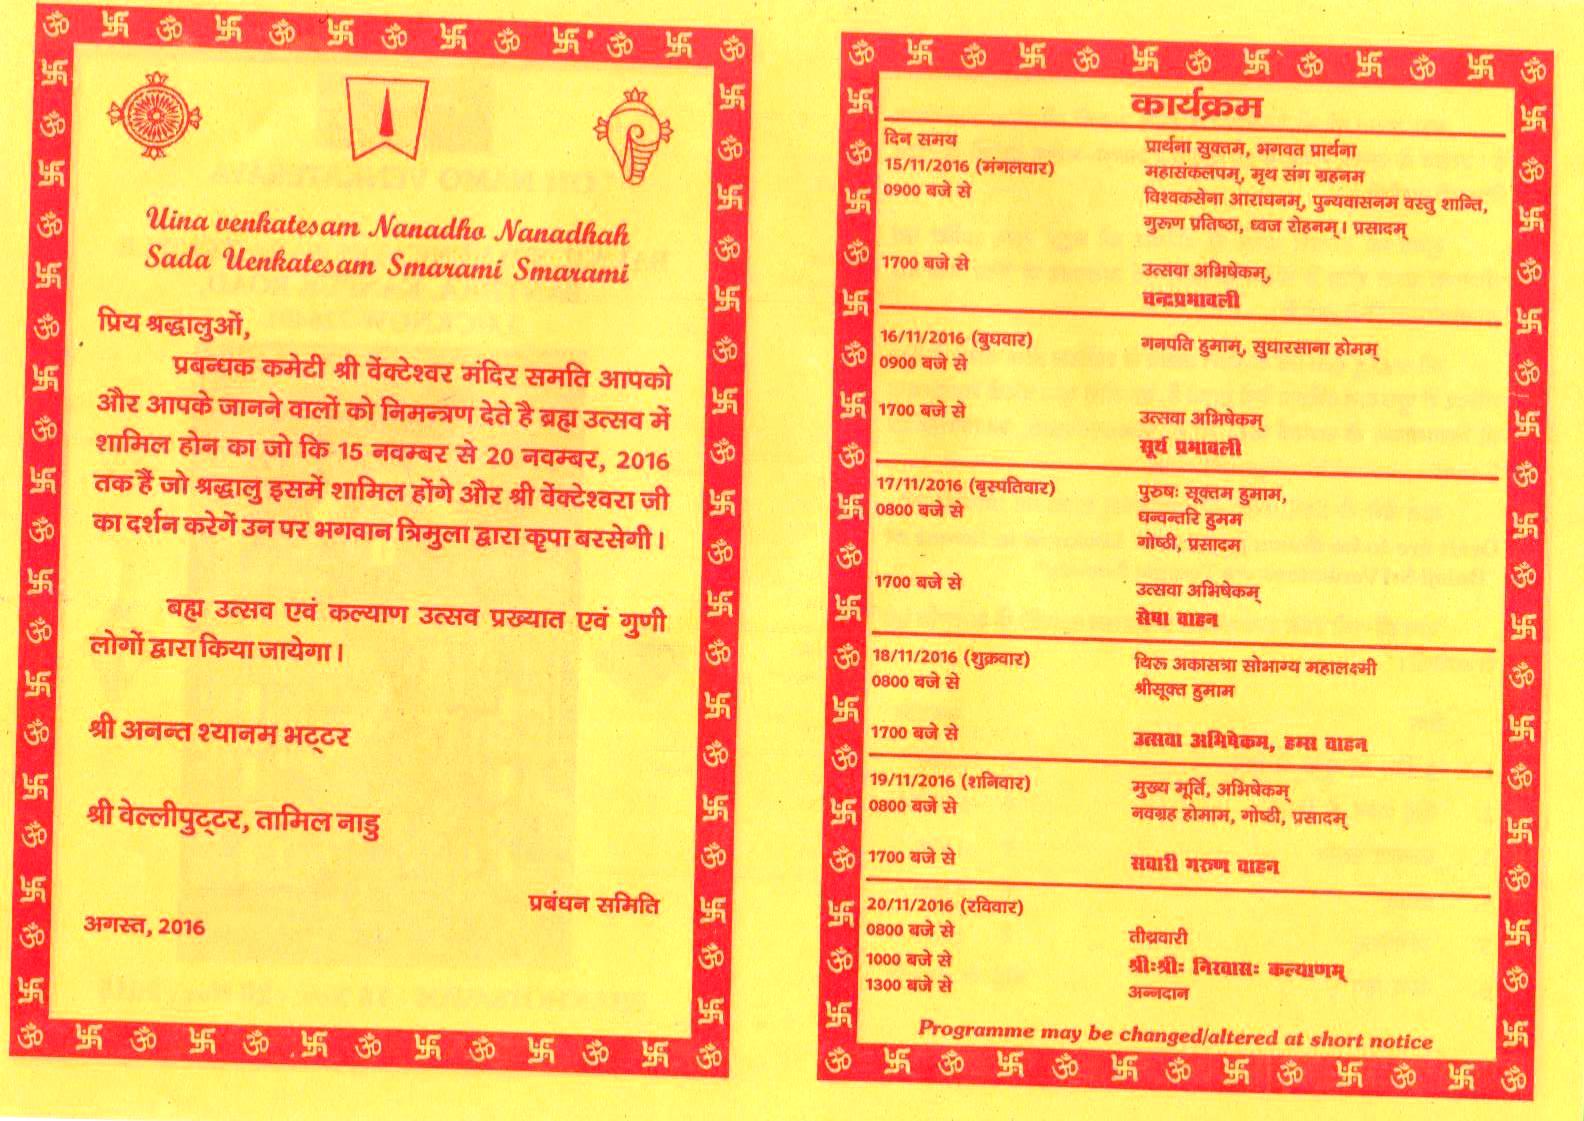 Uina venkatesam Nanadho Nanadhah
Sada Uenkatesam Smarami Smarami
प्रिय श्रद्धालुओं,
प्रबन्धक कमेटी श्री वेंक्टेश्वर मंदिर समति आपको
और आपके जानने वालों को निमन्त्रण देते है ब्रह्म उत्सव में
शामिल होन का जो कि 15 नवम्बर से 20 नवम्बर, 2016
तक हैं जो श्रद्धालु इसमें शामिल होंगे और श्री वेंक्टेश्वरा जी
का दर्शन करेगें उन पर भगवान त्रिमुला द्वारा कृपा बरसेगी।
बह्म उत्सव एवं कल्याण उत्सव प्रख्यात एवं गुणी
लोगों द्वारा किया जायेगा।
श्री अनन्त श्यानम भट्टर
श्री वेल्लीपुट्टर, तामिल नाडु
प्रबंधन समिति
अगस्त, 2016
कार्यक्रम
दिन समय प्रार्थना सुक्तम, भगवत प्रार्थना
15/11/2016 (मंगलवार) महासंकलपम्, मृथ संग ग्रहनम
0900 बजे से विश्वकसेना आराधनम्, पुन्यवासनम वस्तु शान्ति,
गुरूण प्रतिष्ठा, ध्वज रोहनम्। प्रसादम्
1700 बजे से उत्सवा अभिषेकम्,
चन्द्रप्रभावली
16/11/2016 (बुधवार) गनपति हुमाम्, सुधारसाना होमम्
0900 बजे से
1700 बजे से उत्सवा अभिषेकम्
सूर्य प्रभावली
17/11/2016 (बृस्पतिवार) पुरुषः सूक्तम हुमाम,
0800 बजे से धन्वन्तरि हुमम
गोष्ठी, प्रसादम
1700 बजे से उत्सवा अभिषेकम्
सेषा वाहन
18/11/2016 (शुक्रवार) थिरू अकासत्रा सोभाग्य महालक्ष्मी
0800 बजे से श्रीसूक्त हुमाम
1700 बजे से उत्सवा अभिषेकम, हमस वाहन
19/11/2016 (शनिवार) मुख्य मूर्ति, अभिषेकम्
0800 बजे से नवग्रह होमाम, गोष्ठी, प्रसादम्
1700 बजे से सवारी गरुण वाहन
20/11/2016 (रविवार)
0800 बजे से तीथ्रवारी
1000 बजे से श्रीःश्रीः निरवासः कल्याणम्
1300 बजे से अन्नदान
Programme may be changed/altered at short notice